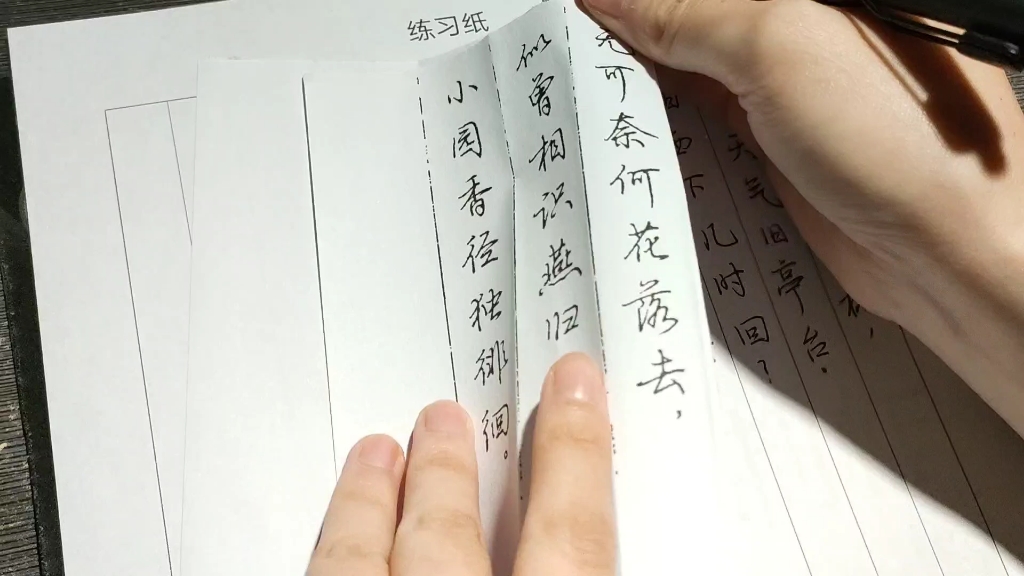 练习纸
杯，
天气旧亭台.
西下几时回?
无可奈何花落去，
似曾相识燕归
小园香径独徘徊。